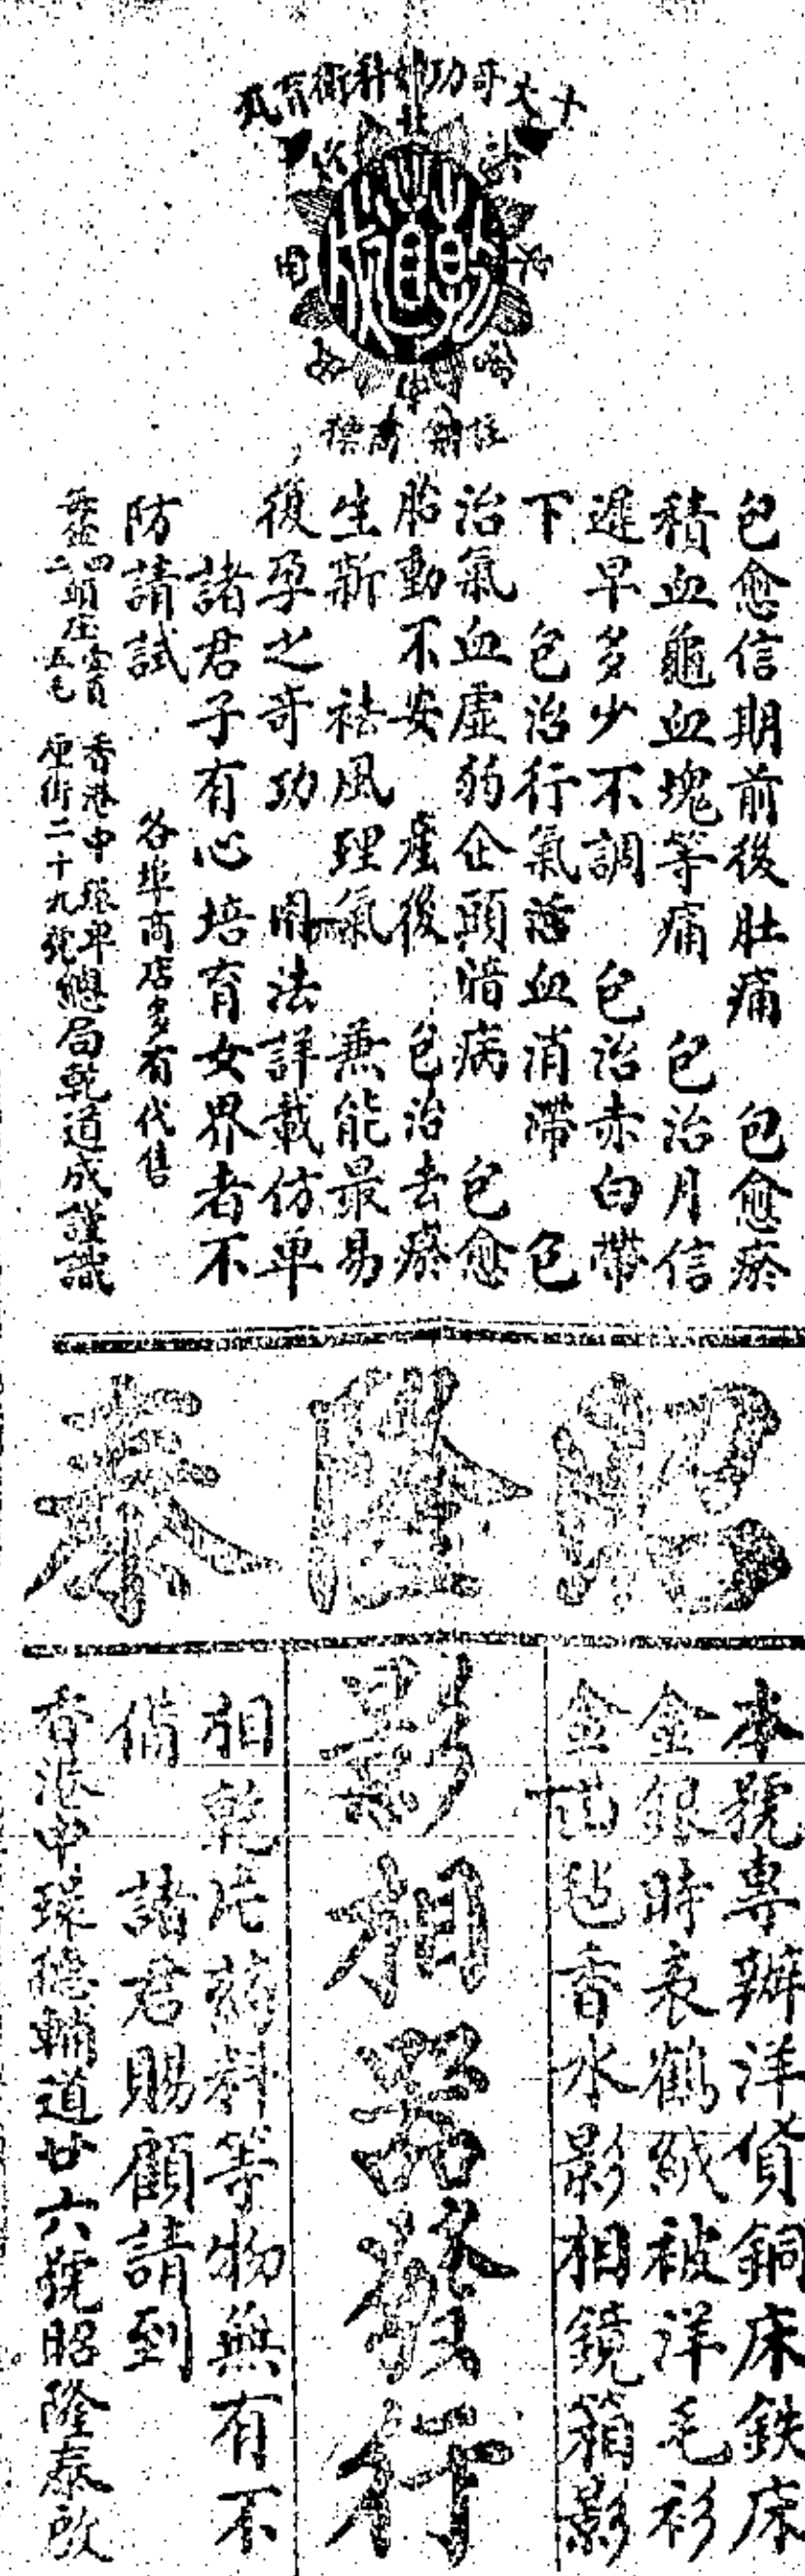 十大奇功婦科衛育丸
乾道成
註冊商標
包愈信期前後肚痛　包愈瘀
積血龜血塊等痛　包治月信
遲早多少不調　包治赤白帶
下　包治行氣活血消滯　包
治氣血虛弱企頭暗病　包愈
胎動不安　產後　包治去瘀
生新　袪風理氣　兼能最易
復孕之奇功　用法詳載仿單
諸君子有心培育女界者不
防請試
各埠商店多有代售
香港中環
街二十九號總局乾道成謹識
昭隆泰
本號專辦洋貨銅床鉄床
金銀時表鶴絨被洋毛衫
金山毡香水影相鏡箱影
影相器發行
相乾片葯料等物無有不
備　諸君賜顧請到
香港中環德輔道廿六號昭隆泰啟